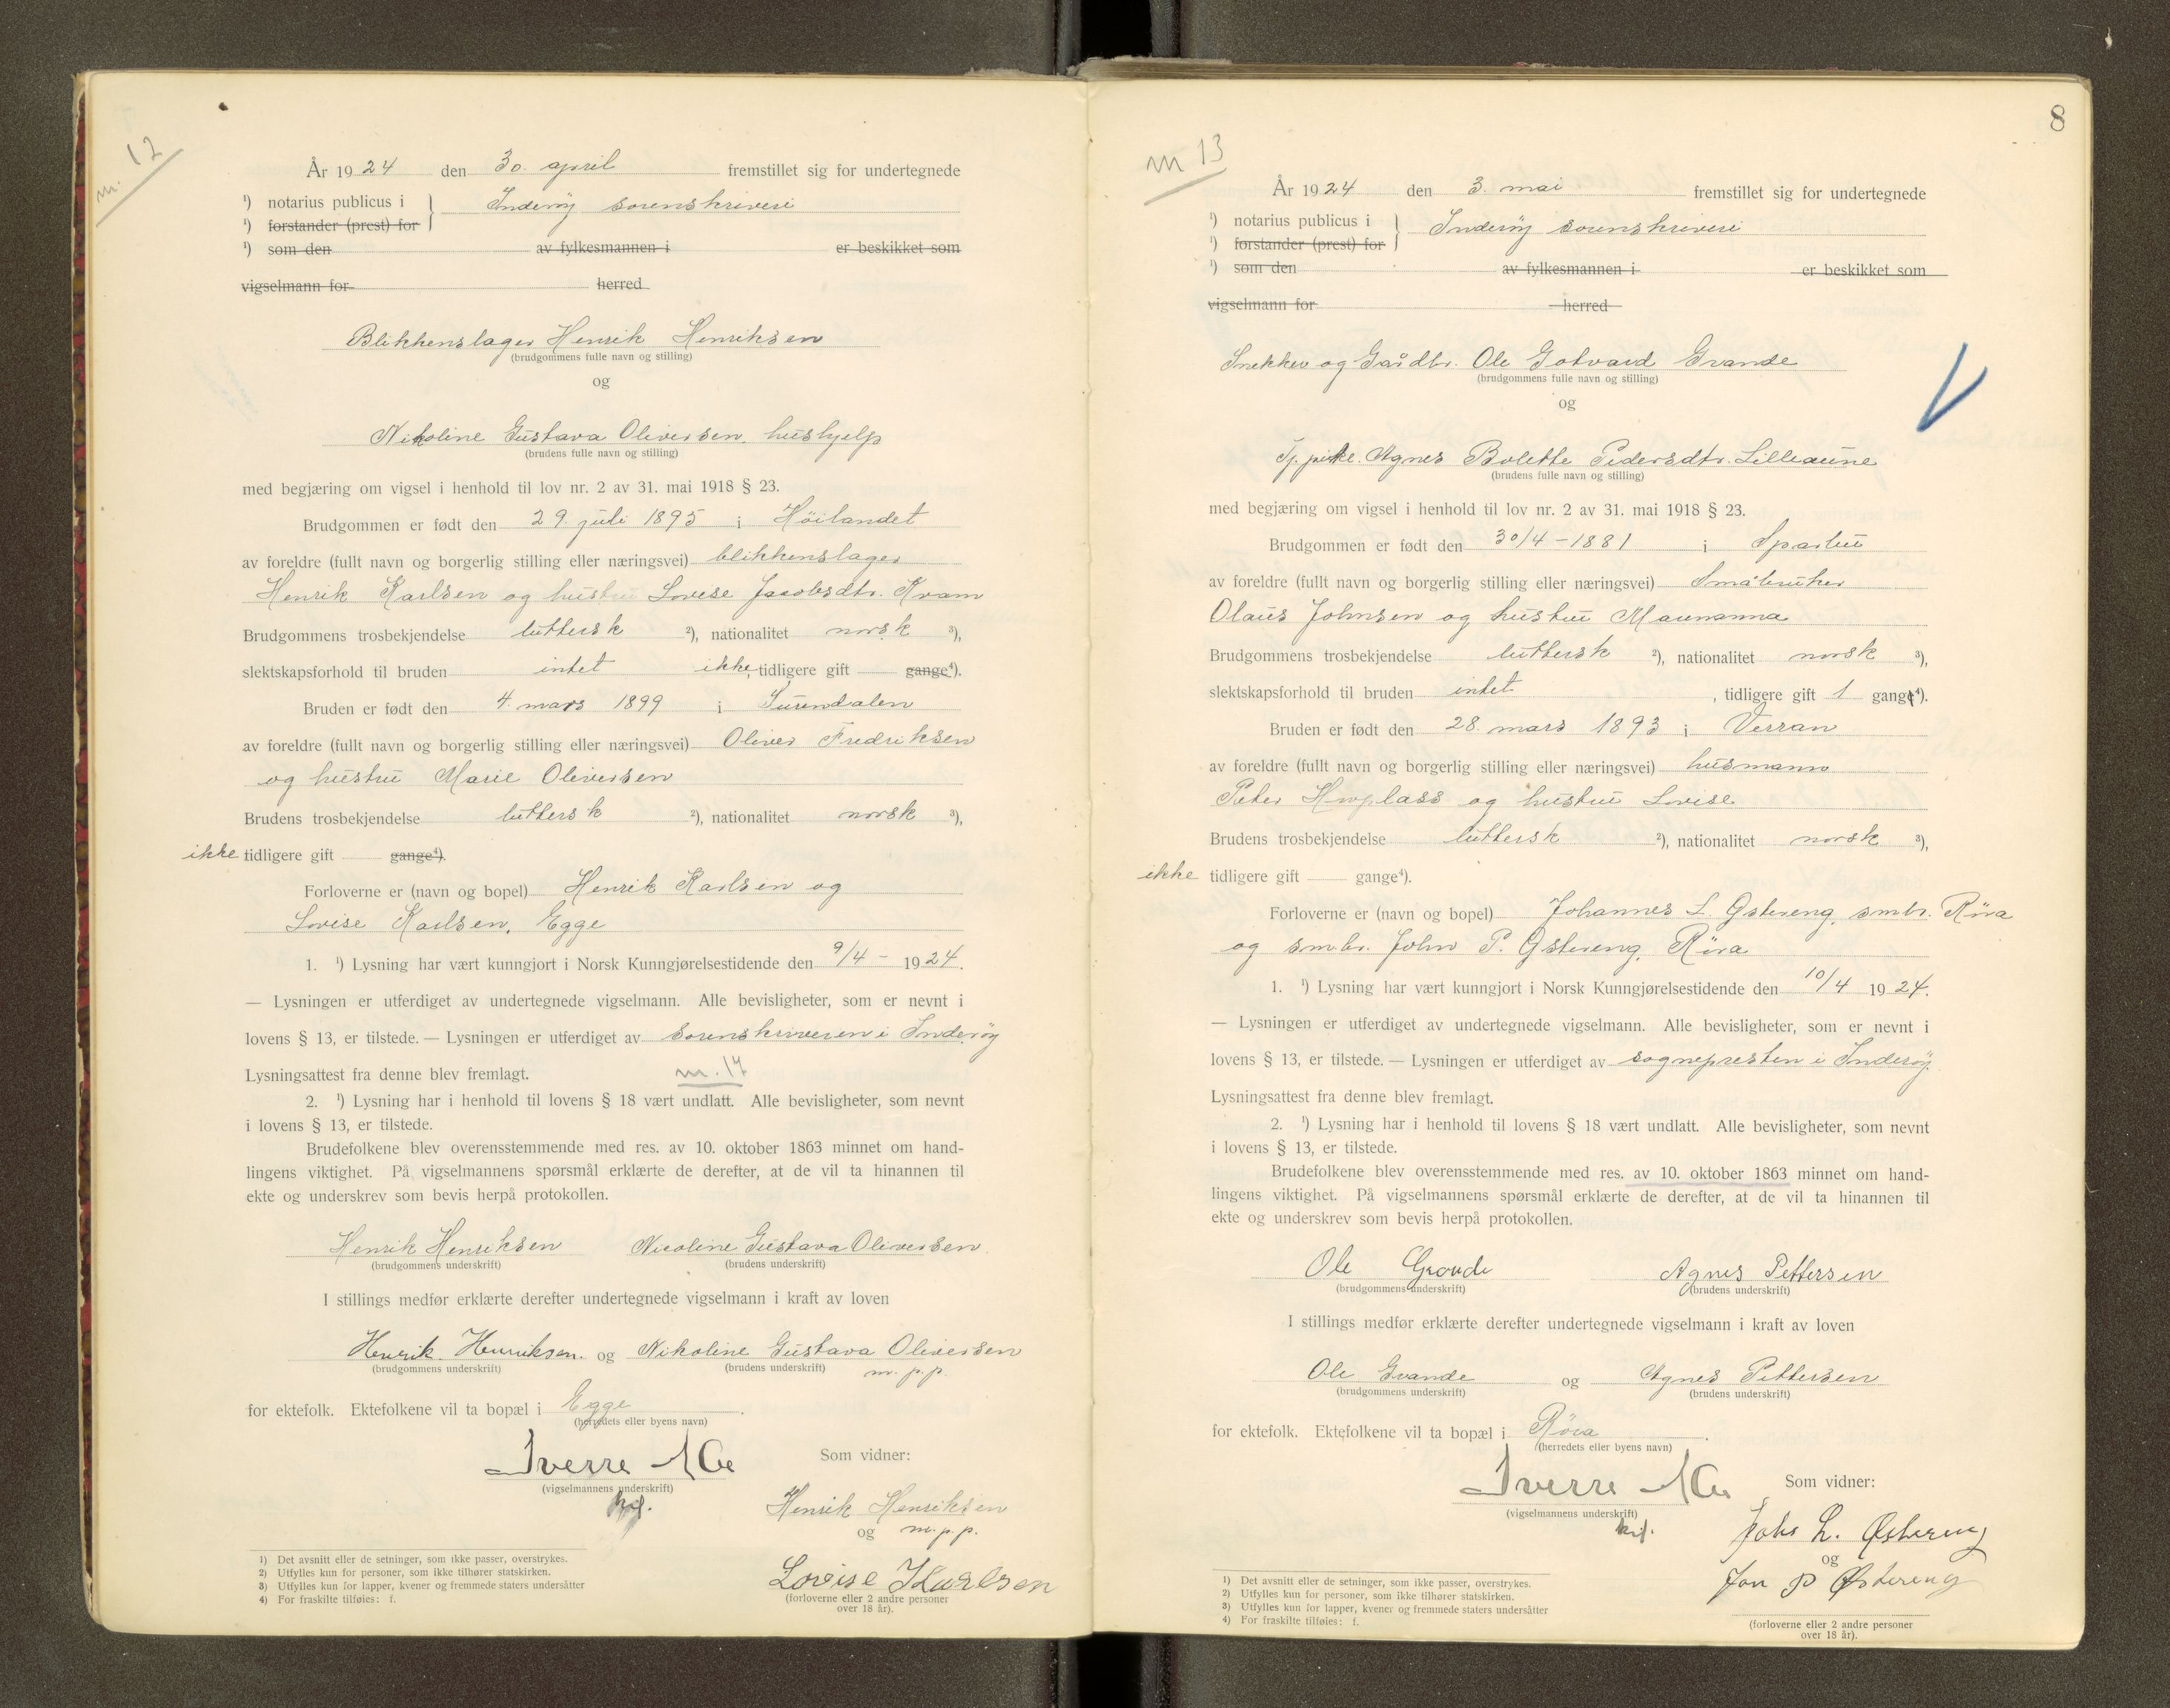 m. 12
År 1924 den 30. april fremstillet sig for undertegnede
1) notarius publicus i
1) forstander (prest) for
Inderøy sorenskriveri
1) som den av fylkesmannen i er beskikket som
vigselmann for herred
Blikkenslager Henrik Henriksen
(brudgommens fulle navn og stilling)
og
Nikoline Gustava Oliversen, hushjelp
(brudens fulle navn og stilling)
med begjæring om vigsel i henhold til lov nr. 2 av 31. mai 1918 § 23.
Brudgommen er født den 29. juli 1895 i Höilandet
av foreldre (fullt navn og borgerlig stilling eller næringsvei) blikkenslager
Henrik Karlsen og hustru Lovise Jacobsdtr. Kvam
Brudgommens trosbekjendelse luthersk 2), nationalitet norsk 3),
slektskapsforhold til bruden intet ikke, tidligere gift gange4).
Bruden er født den 4. mars 1899 i Surendalen
av foreldre (fullt navn og borgerlig stilling eller næringsvei) Oliver Fredriksen
og hustru Marie Oliversen
Brudens trosbekjendelse luthersk 2), nationalitet norsk 3),
ikke tidligere gift gange4).
Forloverne er (navn og bopel) Henrik Karlsen og
Lovise Karlsen, Egge
1. 1) Lysning har vært kunngjort i Norsk Kunngjørelsestidende den 9/4 - 1924.
— Lysningen er utferdiget av undertegnede vigselmann. Alle bevisligheter, som er nevnt i
lovens § 13, er tilstede. — Lysningen er utferdiget av sorenskriveren i Inderøy
Lysningsattest fra denne blev fremlagt. m. 14
2. 1) Lysning har i henhold til lovens § 18 vært undlatt. Alle bevisligheter, som nevnt
i lovens § 13, er tilstede.
Brudefolkene blev overensstemmende med res. av 10. oktober 1863 minnet om hand-
lingens viktighet. På vigselmannens spørsmål erklærte de derefter, at de vil ta hinannen til
ekte og underskrev som bevis herpå protokollen.
Henrik Henriksen Nicoline Gustava Oliversen
(brudgommens underskrift) (brudens underskrift)
I stillings medfør erklærte derefter undertegnede vigselmann i kraft av loven
Henrik Henriksen. og Nikoline Gustava Oliversen
(brudgommens underskrift) (brudens underskrift) m. p. p.
for ektefolk. Ektefolkene vil ta bopæl i Egge.
(herredets eller byens navn)
Sverre
Som vidner:
(vigselmannens underskrift)
Henrik Henriksen
og m. p. p.
Lovise Karlsen
(forloverne eller 2 andre personer
over 18 år).
1) Det avsnitt eller de setninger, som ikke passer, overstrykes.
2) Utfylles kun for personer, som ikke tilhører statskirken.
3) Utfylles kun for lapper, kvener og fremmede staters undersåtter
4) For fraskilte tilføies: f.
8
m 13
År 1924 den 3. mai fremstillet sig for undertegnede
1) notarius publicus i
1) forstander (prest) for
Inderøy sorenskriveri
1) som den av fylkesmannen i er beskikket som
vigselmann for herred
Snekker og Gårdbr. Ole Gotvard Grande
(brudgommens fulle navn og stilling)
og
Tj. pike. Agnes Bolette Pedersdtr. Lilleaune
(brudens fulle navn og stilling)
med begjæring om vigsel i henhold til lov nr. 2 av 31. mai 1918 § 23.
Brudgommen er født den 30/4 - 1881 i Sparbu
av foreldre (fullt navn og borgerlig stilling eller næringsvei) Småbruker
Olaus Johnsen og hustru Maumanna
Brudgommens trosbekjendelse luthersk 2), nationalitet norsk 3),
slektskapsforhold til bruden intet, tidligere gift 1 gang4).
Bruden er født den 28. mars 1893 i Verran
av foreldre (fullt navn og borgerlig stilling eller næringsvei) husmann
Peter og hustru Lovise
Brudens trosbekjendelse luthersk 2), nationalitet norsk 3),
ikke tidligere gift gange4).
Forloverne er (navn og bopel) Johannes L. Østereng, smbr. Röra
og smbr. John P. Østereng, Röra
1. 1) Lysning har vært kunngjort i Norsk Kunngjørelsestidende den 10/4 1924.
— Lysningen er utferdiget av undertegnede vigselmann. Alle bevisligheter, som er nevnt i
lovens § 13, er tilstede. — Lysningen er utferdiget av sognepresten i Inderøy.
Lysningsattest fra denne blev fremlagt.
2. 1) Lysning har i henhold til lovens § 18 vært undlatt. Alle bevisligheter, som nevnt
i lovens § 13, er tilstede.
Brudefolkene blev overensstemmende med res. av 10. oktober 1863 minnet om hand-
lingens viktighet. På vigselmannens spørsmål erklærte de derefter, at de vil ta hinannen til
ekte og underskrev som bevis herpå protokollen.
Ole Grande Agnes Pettersen
(brudgommens underskrift) (brudens underskrift)
I stillings medfør erklærte derefter undertegnede vigselmann i kraft av loven
Ole Grande og Agnes Pettersen
(brudgommens underskrift) (brudens underskrift)
for ektefolk. Ektefolkene vil ta bopæl i Röra.
(herredets eller byens navn)
Sverre
Som vidner:
(vigselmannens underskrift)
Johs L. Østereng
og
Jon P Østereng
(forloverne eller 2 andre personer
over 18 år).
1) Det avsnitt eller de setninger, som ikke passer, overstrykes.
2) Utfylles kun for personer, som ikke tilhører statskirken.
3) Utfylles kun for lapper, kvener og fremmede staters undersåtter
4) For fraskilte tilføies: f.